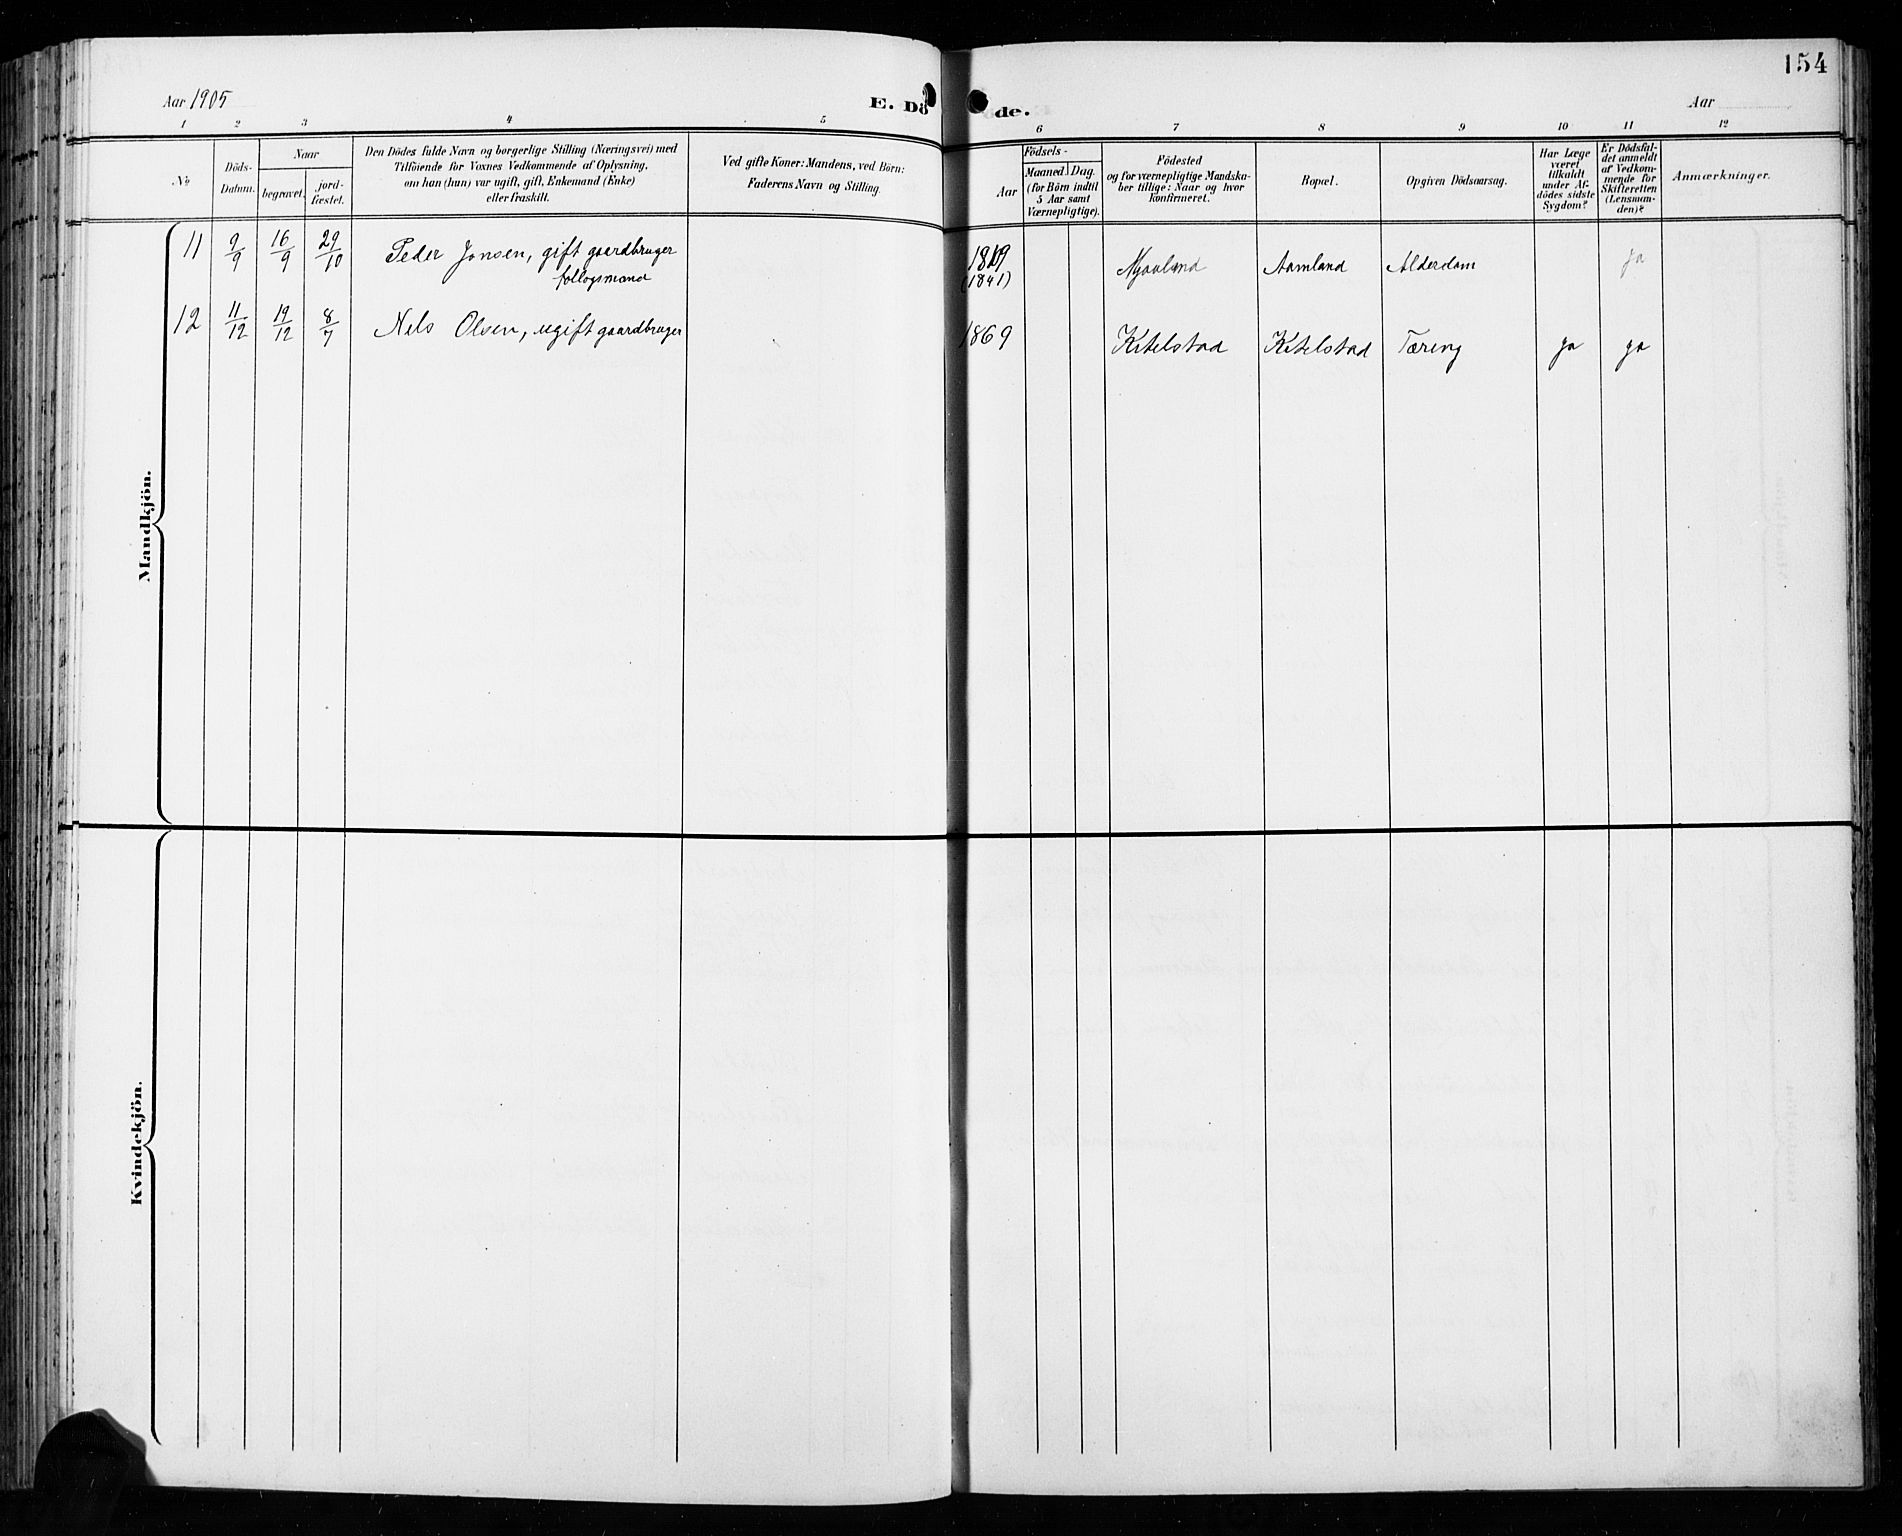 154
Aar 1905
E. Dö
de.
Aar
1 2 3 4 5
6 7 8 9 10 11 12
No.
Döds-
Datum.
Naar
begravet.
jord-
fæstet.
Den Dödes fulde Navn og borgerlige Stilling (Næringsvei) med
Tilföiende for Voxnes Vedkommende af Oplysning,
om han (hun) var ugift, gift, Enkemand (Enke)
eller fraskilt.
Ved gifte Koner: Mandens, ved Börn:
Faderens Navn og Stilling.
Födsels-
Aar
Maaned. Dag.
(for Börn indtil
5 Aar samt
Værnepligtige).
Födested
og for værnepligtige Mandska-
ber tillige: Naar og hvor
konfirmeret.
Bopæl.
Opgiven Dödsaarsag.
Har Læge
været
tilkaldt
under Af-
dödes sidste
Sygdom?
Er Dödsfal-
det anmeldt
af Vedkom-
mende for
Skifteretten
(Lensman-
den)?
Anmærkninger.
Mandkjön.
11 9/9 16/9 29/10 Peder Jonsen, gift gaardbruger
follogsmand
1819
(1841)
Mjaaland Aamland Alderdom ja
12 11/12 19/12 8/7 Nels Olsen, ugift gaardbruger 1869 Ketelstad Ketelstad Tæring ja ja
Kvindekjön.